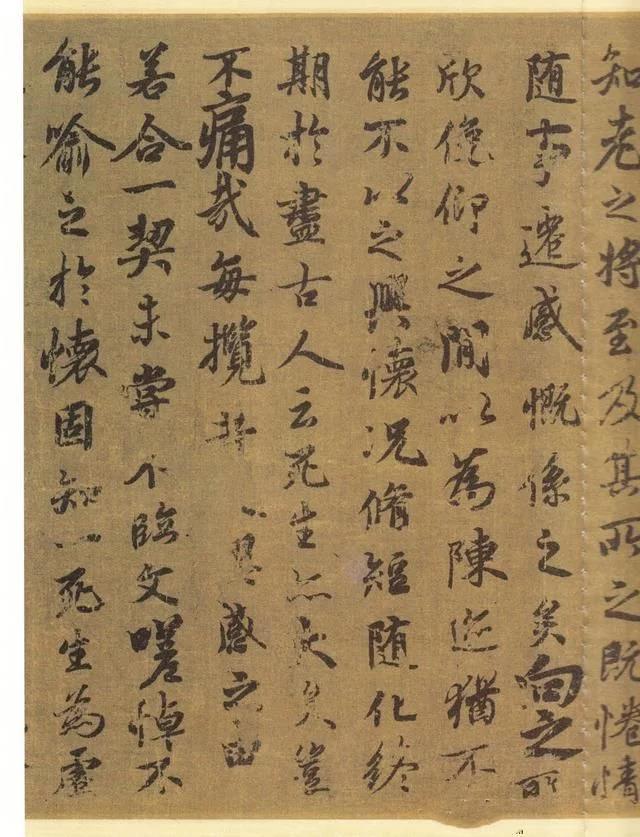 知老之将至及其所之既惓情
随事遷感慨係之矣向之所
欣俛仰之閒以為陳迹猶不
能不以之興懷况脩短随化終
期於盡古人云死生亦大矣豈
不痛哉每攬昔人興感之由
若合一契未嘗不臨文嗟悼不
能喻之於懷固知一死生為虛